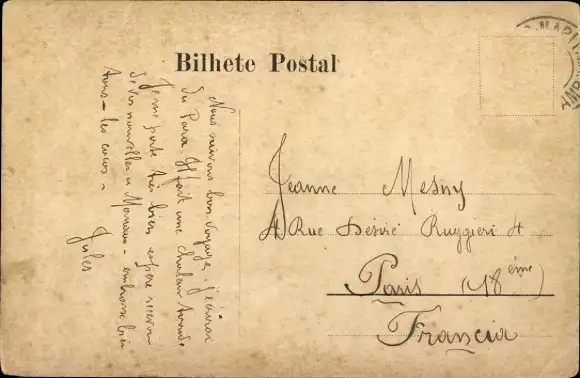 Bilhete Postal
Nous suivons bon voyage. J'écrirai
du Para. Il fait une chaleur
Je me porte très bien espère recevoir
de vos nouvelles a Manaus - embrasse bien
tous - les cocos -
Jules
Jeanne Mesny
4 Rue Désiré Ruggieri 4
Paris (18ème)
Francia